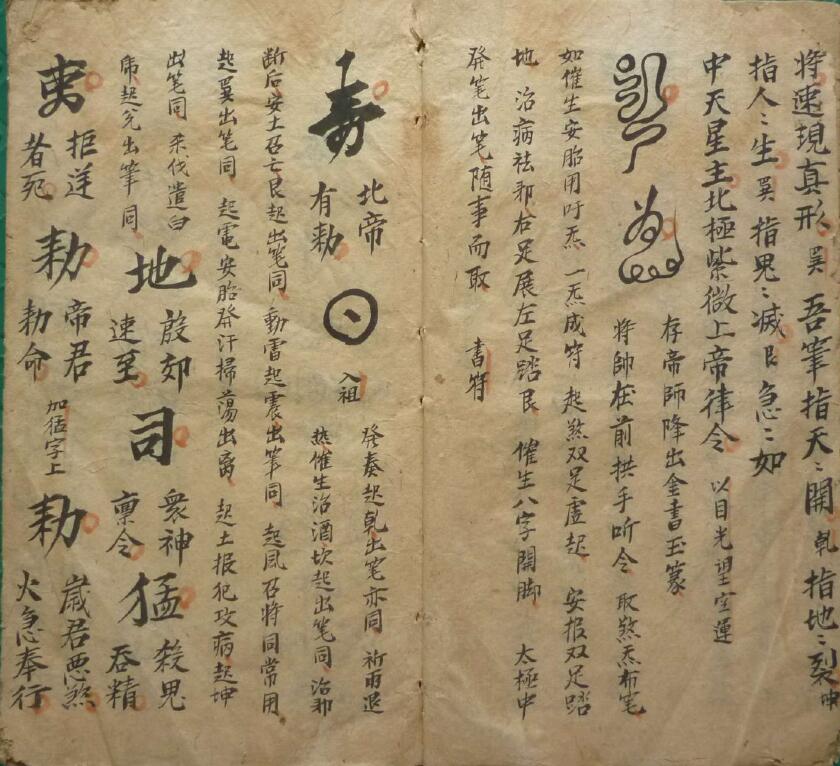 将速現真形 巽 吾筆指天〻開 乾 指地〻裂 坤
指人〻生 巽 指鬼〻滅 艮 急〻如
中天星主北極紫微上帝律令 以目光望空運
存帝師降出金書玉篆
将帥在前拱手听令 取煞炁布笔
如催生安胎用吁炁 一炁成符 起煞双足虚起 安报双足踏
地 治病祛邪右足展左足踏艮 催生八字開脚 太極中
発笔出笔随事而取 書符
寿 北帝
有勑
入祖
発奏起乾出笔亦同 祈雨退
热催生治酒坎起出笔同 治邪
断后安土召亡艮起出笔同 動雷起震出筆同 起風召将同常用
起巽出笔同 起電安胎発汗掃蕩出离 起土报犯攻病起坤
出笔同 来伐遣白
虎起兌出筆同
地 殷郊
速至
司 衆神
禀令
猛 殺鬼
吞精
拒逆
者死
勑 帝君
勑命
加猛字上
勑 歲君悪煞
火急奉行